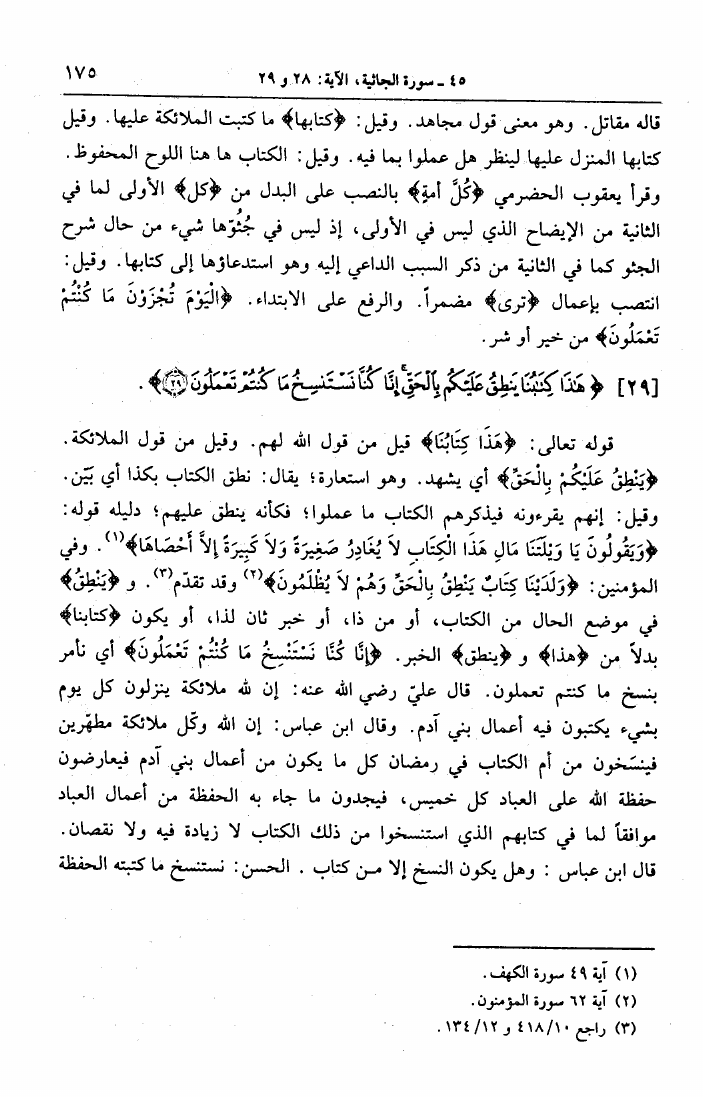 ٤٥ ـ سورة الجاثية، الآية: ٢٨ و ٢٩
١٧٥
قاله مقاتل. وهو معنى قول مجاهد. وقيل: ﴿كتابها﴾ ما كتبت الملائكة عليها. وقيل
كتابها المنزل عليها لينظر هل عملوا بما فيه. وقيل: الكتاب ها هنا اللوح المحفوظ.
وقرأ يعقوب الحضرمي ﴿كُلَّ أمةٍ﴾ بالنصب على البدل من ﴿كل﴾ الأولى لما في
الثانية من الإيضاح الذي ليس في الأولى، إذ ليس في جُثُوّها شيء من حال شرح
الجثو كما في الثانية من ذكر السبب الداعي إليه وهو استدعاؤها إلى كتابها. وقيل:
انتصب بإعمال ﴿ترى﴾ مضمراً. والرفع على الابتداء. ﴿الْيَوْمَ تُجْزَوْنَ مَا كُنْتُمْ
تَعْمَلُونَ﴾ من خير أو شر.
[٢٩] ﴿هَٰذَا كِتَٰبُنَا يَنطِقُ عَلَيْكُم بِٱلْحَقِّ ۚ إِنَّا كُنَّا نَسْتَنسِخُ مَا كُنتُمْ تَعْمَلُونَ ۝٢٩﴾.
قوله تعالى: ﴿هَذَا كِتَابُنَا﴾ قيل من قول الله لهم. وقيل من قول الملائكة.
﴿يَنْطِقُ عَلَيْكُمْ بِالْحَقِّ﴾ أي يشهد. وهو استعارة؛ يقال: نطق الكتاب بكذا أي بَيّن.
وقيل: إنهم يقرءونه فيذكرهم الكتاب ما عملوا؛ فكأنه ينطق عليهم؛ دليله قوله:
﴿وَيَقُولُونَ يَا وَيْلَتَنَا مَالِ هَذَا الْكِتَابِ لاَ يُغَادِرُ صَغِيرَةً وَلاَ كَبِيرَةً إِلاَّ أَحْصَاهَا﴾(١). وفي
المؤمنين: ﴿وَلَدَيْنَا كِتَابٌ يَنْطِقُ بِالْحَقِّ وَهُمْ لاَ يُظْلَمُونَ﴾(٢) وقد تقدّم(٣). و ﴿يَنْطِقُ﴾
في موضع الحال من الكتاب، أو من ذا، أو خبر ثان لذا، أو يكون ﴿كتابنا﴾
بدلاً من ﴿هذا﴾ و ﴿ينطق﴾ الخبر. ﴿إِنَّا كُنَّا نَسْتَنْسِخُ مَا كُنْتُمْ تَعْمَلُونَ﴾ أي نأمر
بنسخ ما كنتم تعملون. قال عليّ رضي الله عنه: إن لله ملائكة ينزلون كل يوم
بشيء يكتبون فيه أعمال بني آدم. وقال ابن عباس: إن الله وكّل ملائكة مطهّرين
فينسَخون من أم الكتاب في رمضان كل ما يكون من أعمال بني آدم فيعارضون
حفظة الله على العباد كل خميس، فيجدون ما جاء به الحفظة من أعمال العباد
موافقاً لما في كتابهم الذي استنسخوا من ذلك الكتاب لا زيادة فيه ولا نقصان.
قال ابن عباس : وهل يكون النسخ إلا مـن كتاب . الحسن: نستنسخ ما كتبته الحفظة
(١) آية ٤٩ سورة الكهف.
(٢) آية ٦٢ سورة المؤمنون.
(٣) راجع ٤١٨/١٠ و ١٣٤/١٢.